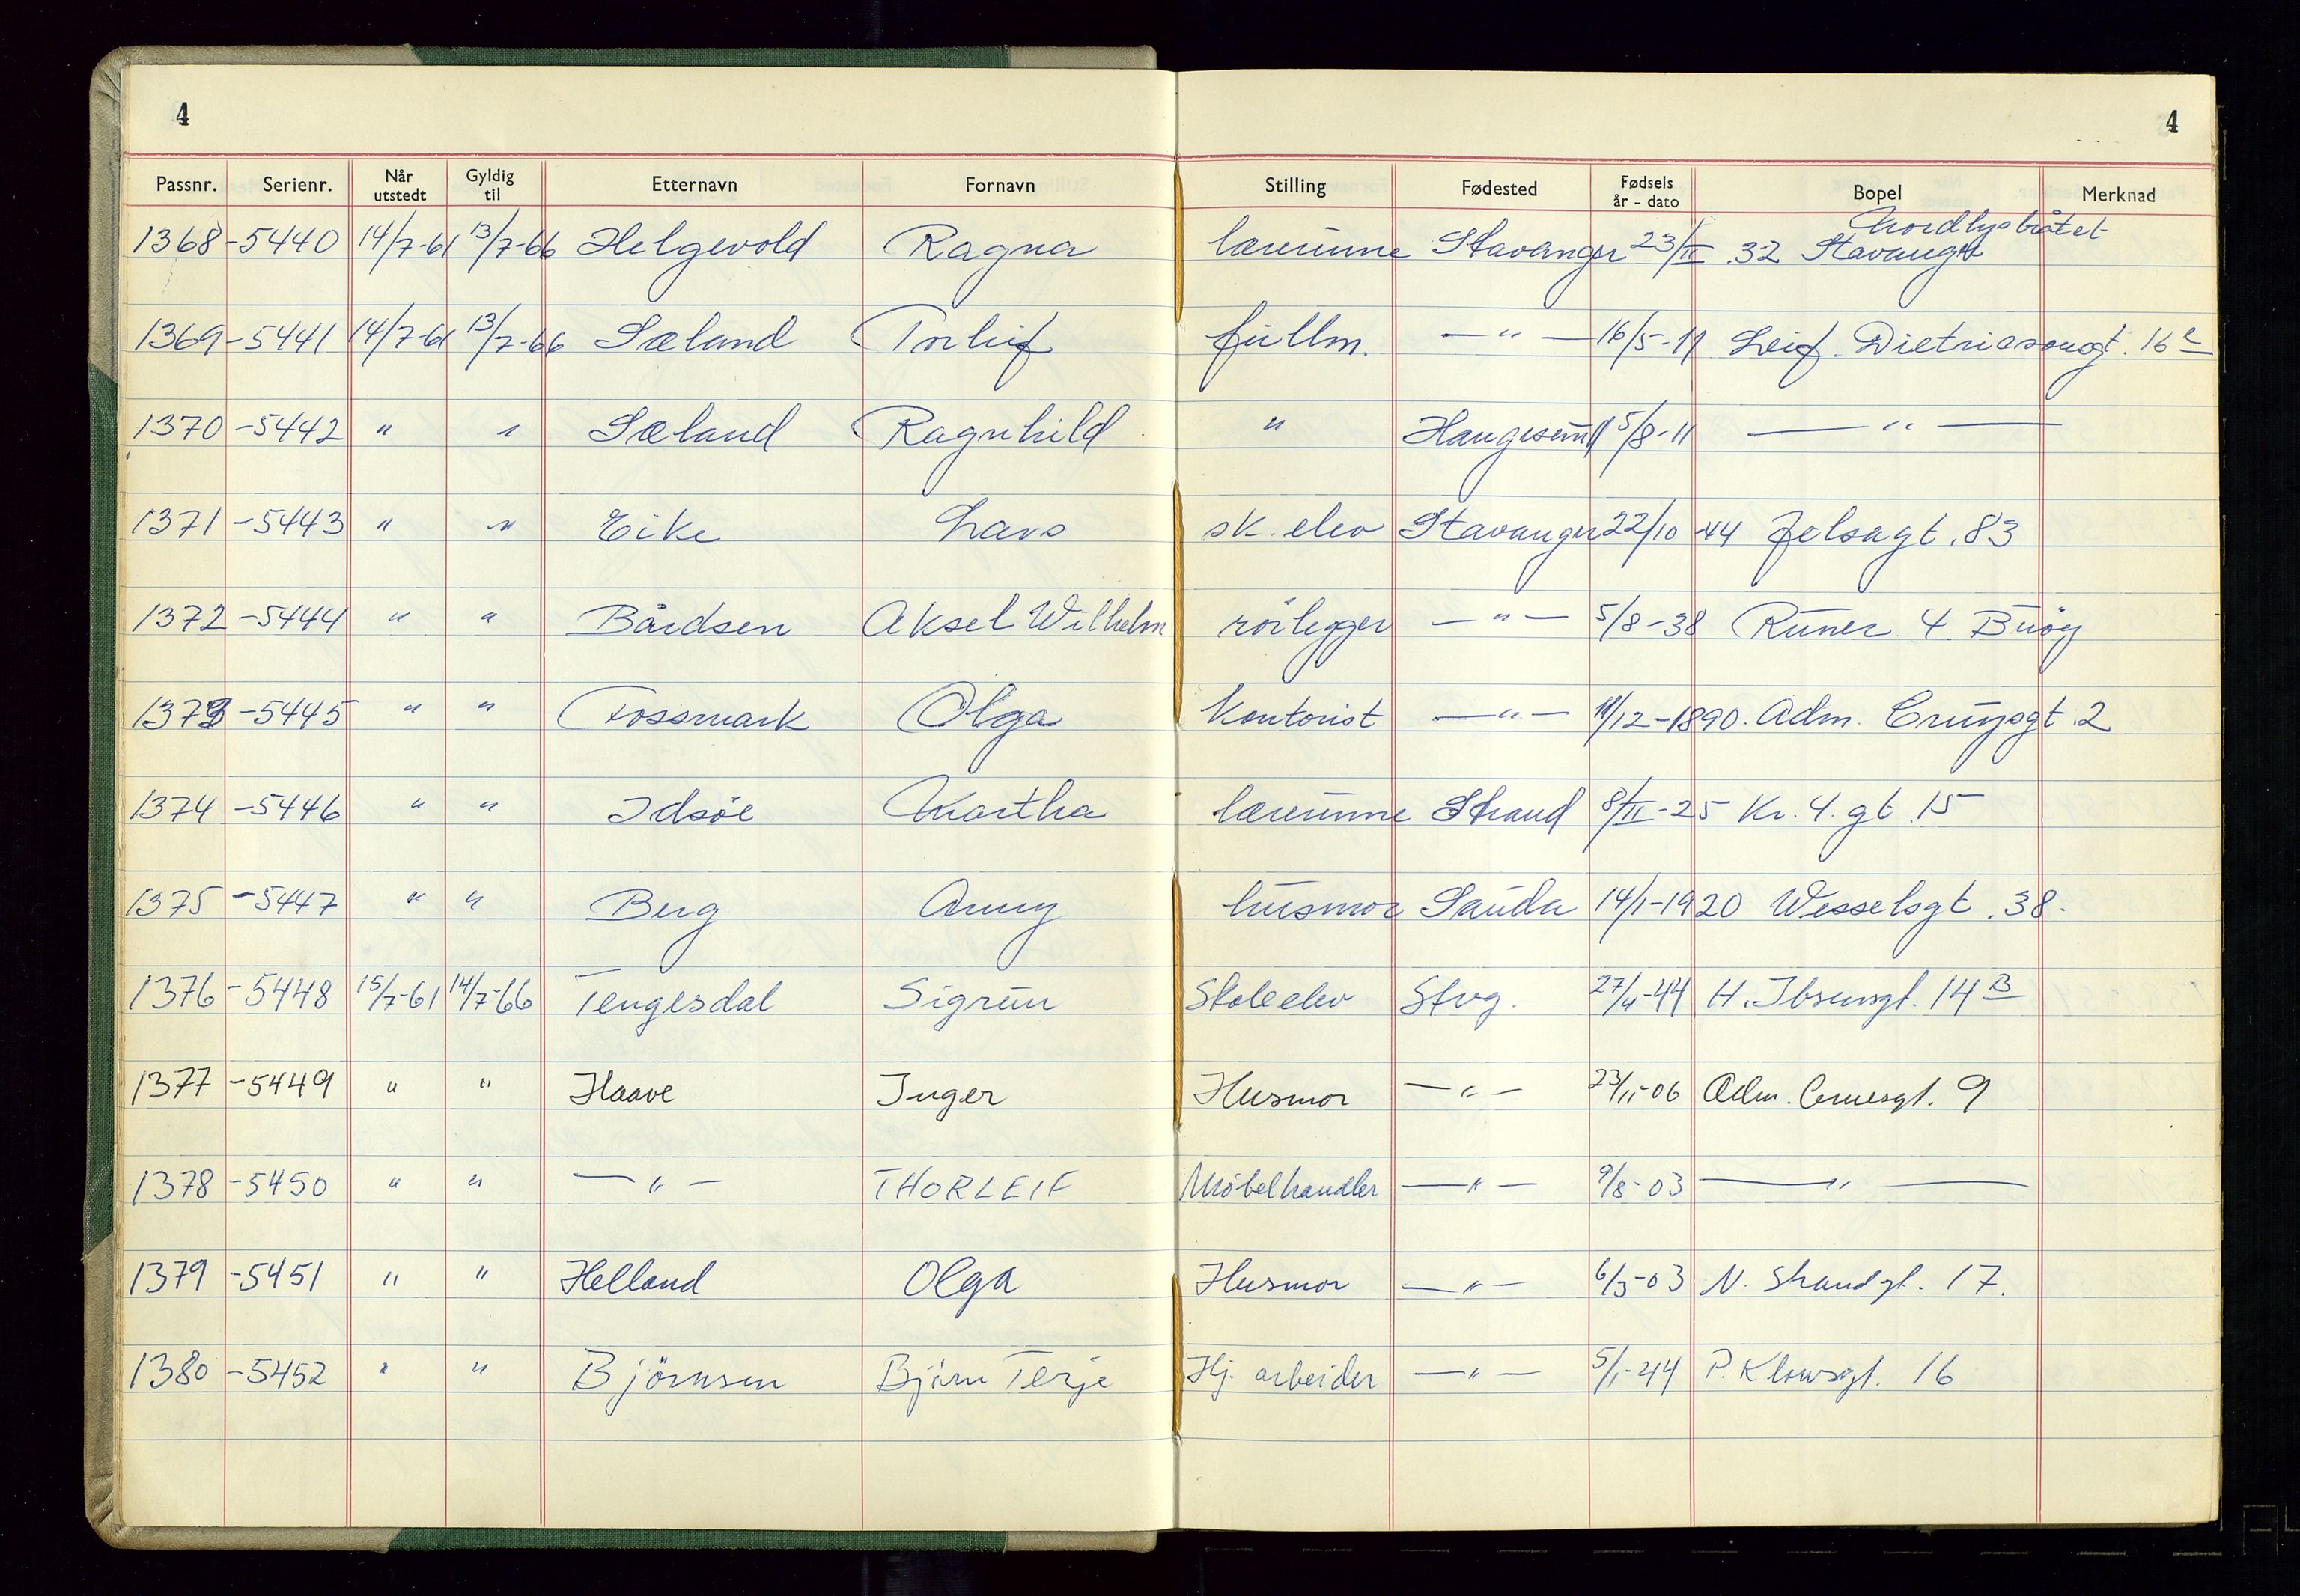 4 4
Passnr. Serienr. Når utstedt Gyldig til Etternavn Fornavn Stilling Fødested Fødsels år - dato Bopel Merknad
1368 -5440 14/7-61 13/7-66 Helgevold Ragna lærerinne Stavanger 23/II .32 Stavanger
1369 -5441 14/7-61 13/7-66 Sæland Torleif fullm. — " — 16/5-11 Leif. Dietricsonsgt. 16
1370 -5442 " " Sæland Ragnhild " Haugesund 15/8-11 — " —
1371 -5443 " " Eike Lars sk. elev Stavanger 22/10 -44 Jelsagt. 83
1372 -5444 " " Bårdsen Aksel Wilhelm rörlegger — " — 5/8-38 Runer 4. Buöy
1373 -5445 " " Fossmark Olga Kontorist — " — 11/12-1890. Adm. Cruysgt. 2
1374 -5446 " " Idsöe Martha lærerinne Strand 8/II-25 Kr. 4. gt. 15
1375 -5447 " " Berg Anny husmor Sauda 14/1-1920 Wesselsgt. 38.
1376 -5448 15/7-61 14/7-66 Tengesdal Sigrun Skoleelev Stvg. 27/4-44 H. Ibsensgt. 14 B
1377 -5449 " " Haave Inger Husmor — " — 23/11-06 Adm. Cruesgt. 9
1378 -5450 " " — " — THORLEIF Möbelhandler — " — 9/8-03 — " —
1379 -5451 " " Helland Olga Husmor — " — 6/3-03 N. Strandgt. 17.
1380 -5452 " " Björnsen Björn Terje Hj. arbeider — " — 5/1-44 P. Klowsgt. 16